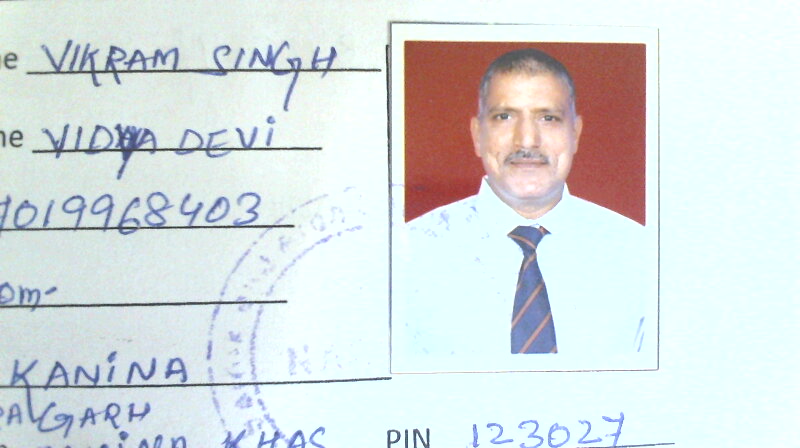 ne VIKRAM SINGH
ne VIDYA DEVI
7019968403
om-
KANINA
GARH
KHAS PIN 123027